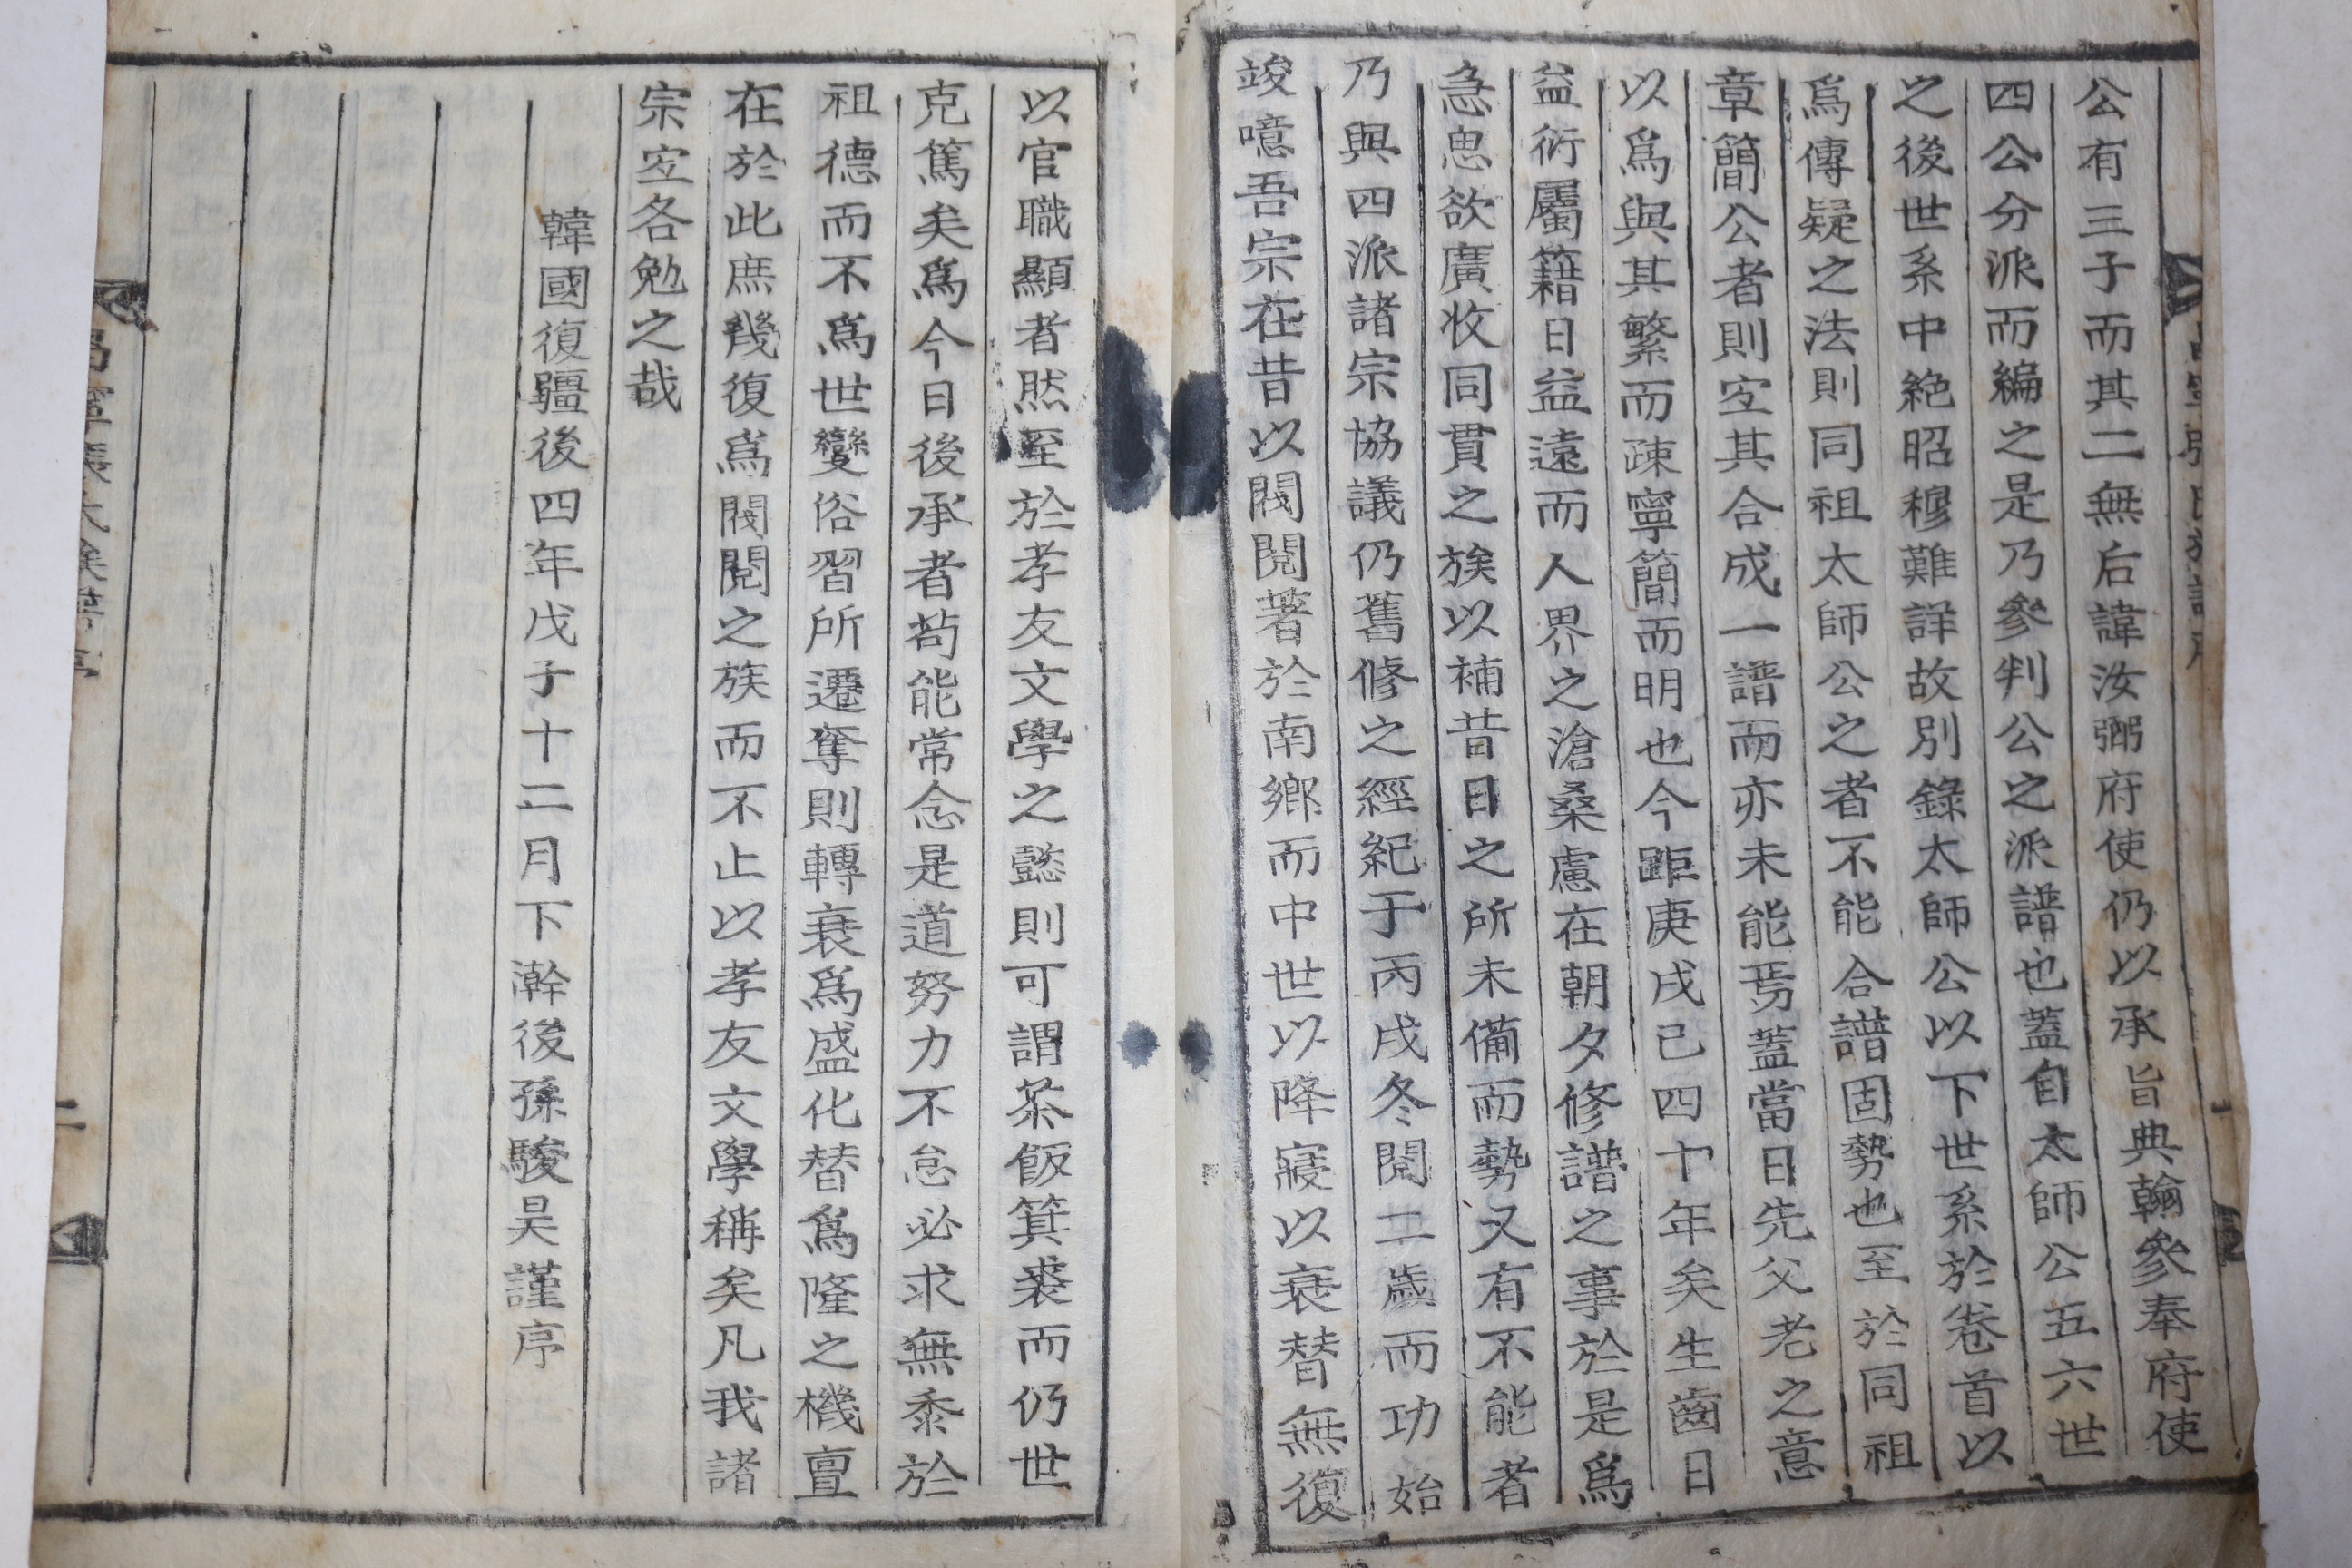 公有三子而其二無后諱汝弼府使仍以承旨典翰參奉府使
四公分派而編之是乃參判公之派譜也蓋自太師公五六世
之後世系中絶昭穆難詳故別錄太師公以下世系於卷首以
爲傳疑之法則同祖太師公之者不能合譜固勢也至於同祖
章簡公者則宜其合成一譜而亦未能焉蓋當日先父老之意
以爲與其繁而疎寧簡而明也今距庚戌已四十年矣生齒日
益衍屬籍日益遠而人界之滄桑慮在朝夕修譜之事於是爲
急思欲廣收同貫之族以補昔日之所未備而勢又有不能者
乃與四派諸宗協議仍舊修之經紀于丙戌冬閱二歲而功始
竣噫吾宗在昔以閥閱著於南鄕而中世以降寢以衰替無復
以官職顯者然至於孝友文學之懿則可謂茶飯箕裘而仍世
克篤矣爲今日後承者苟能常念是道努力不怠必求無忝於
祖德而不爲世變俗習所遷奪則轉衰爲盛化替爲隆之機亶
在於此庶幾復爲閥閱之族而不止以孝友文學稱矣凡我諸
宗宜各勉之哉
韓國復疆後四年戊子十二月下澣後孫駿昊謹序
二